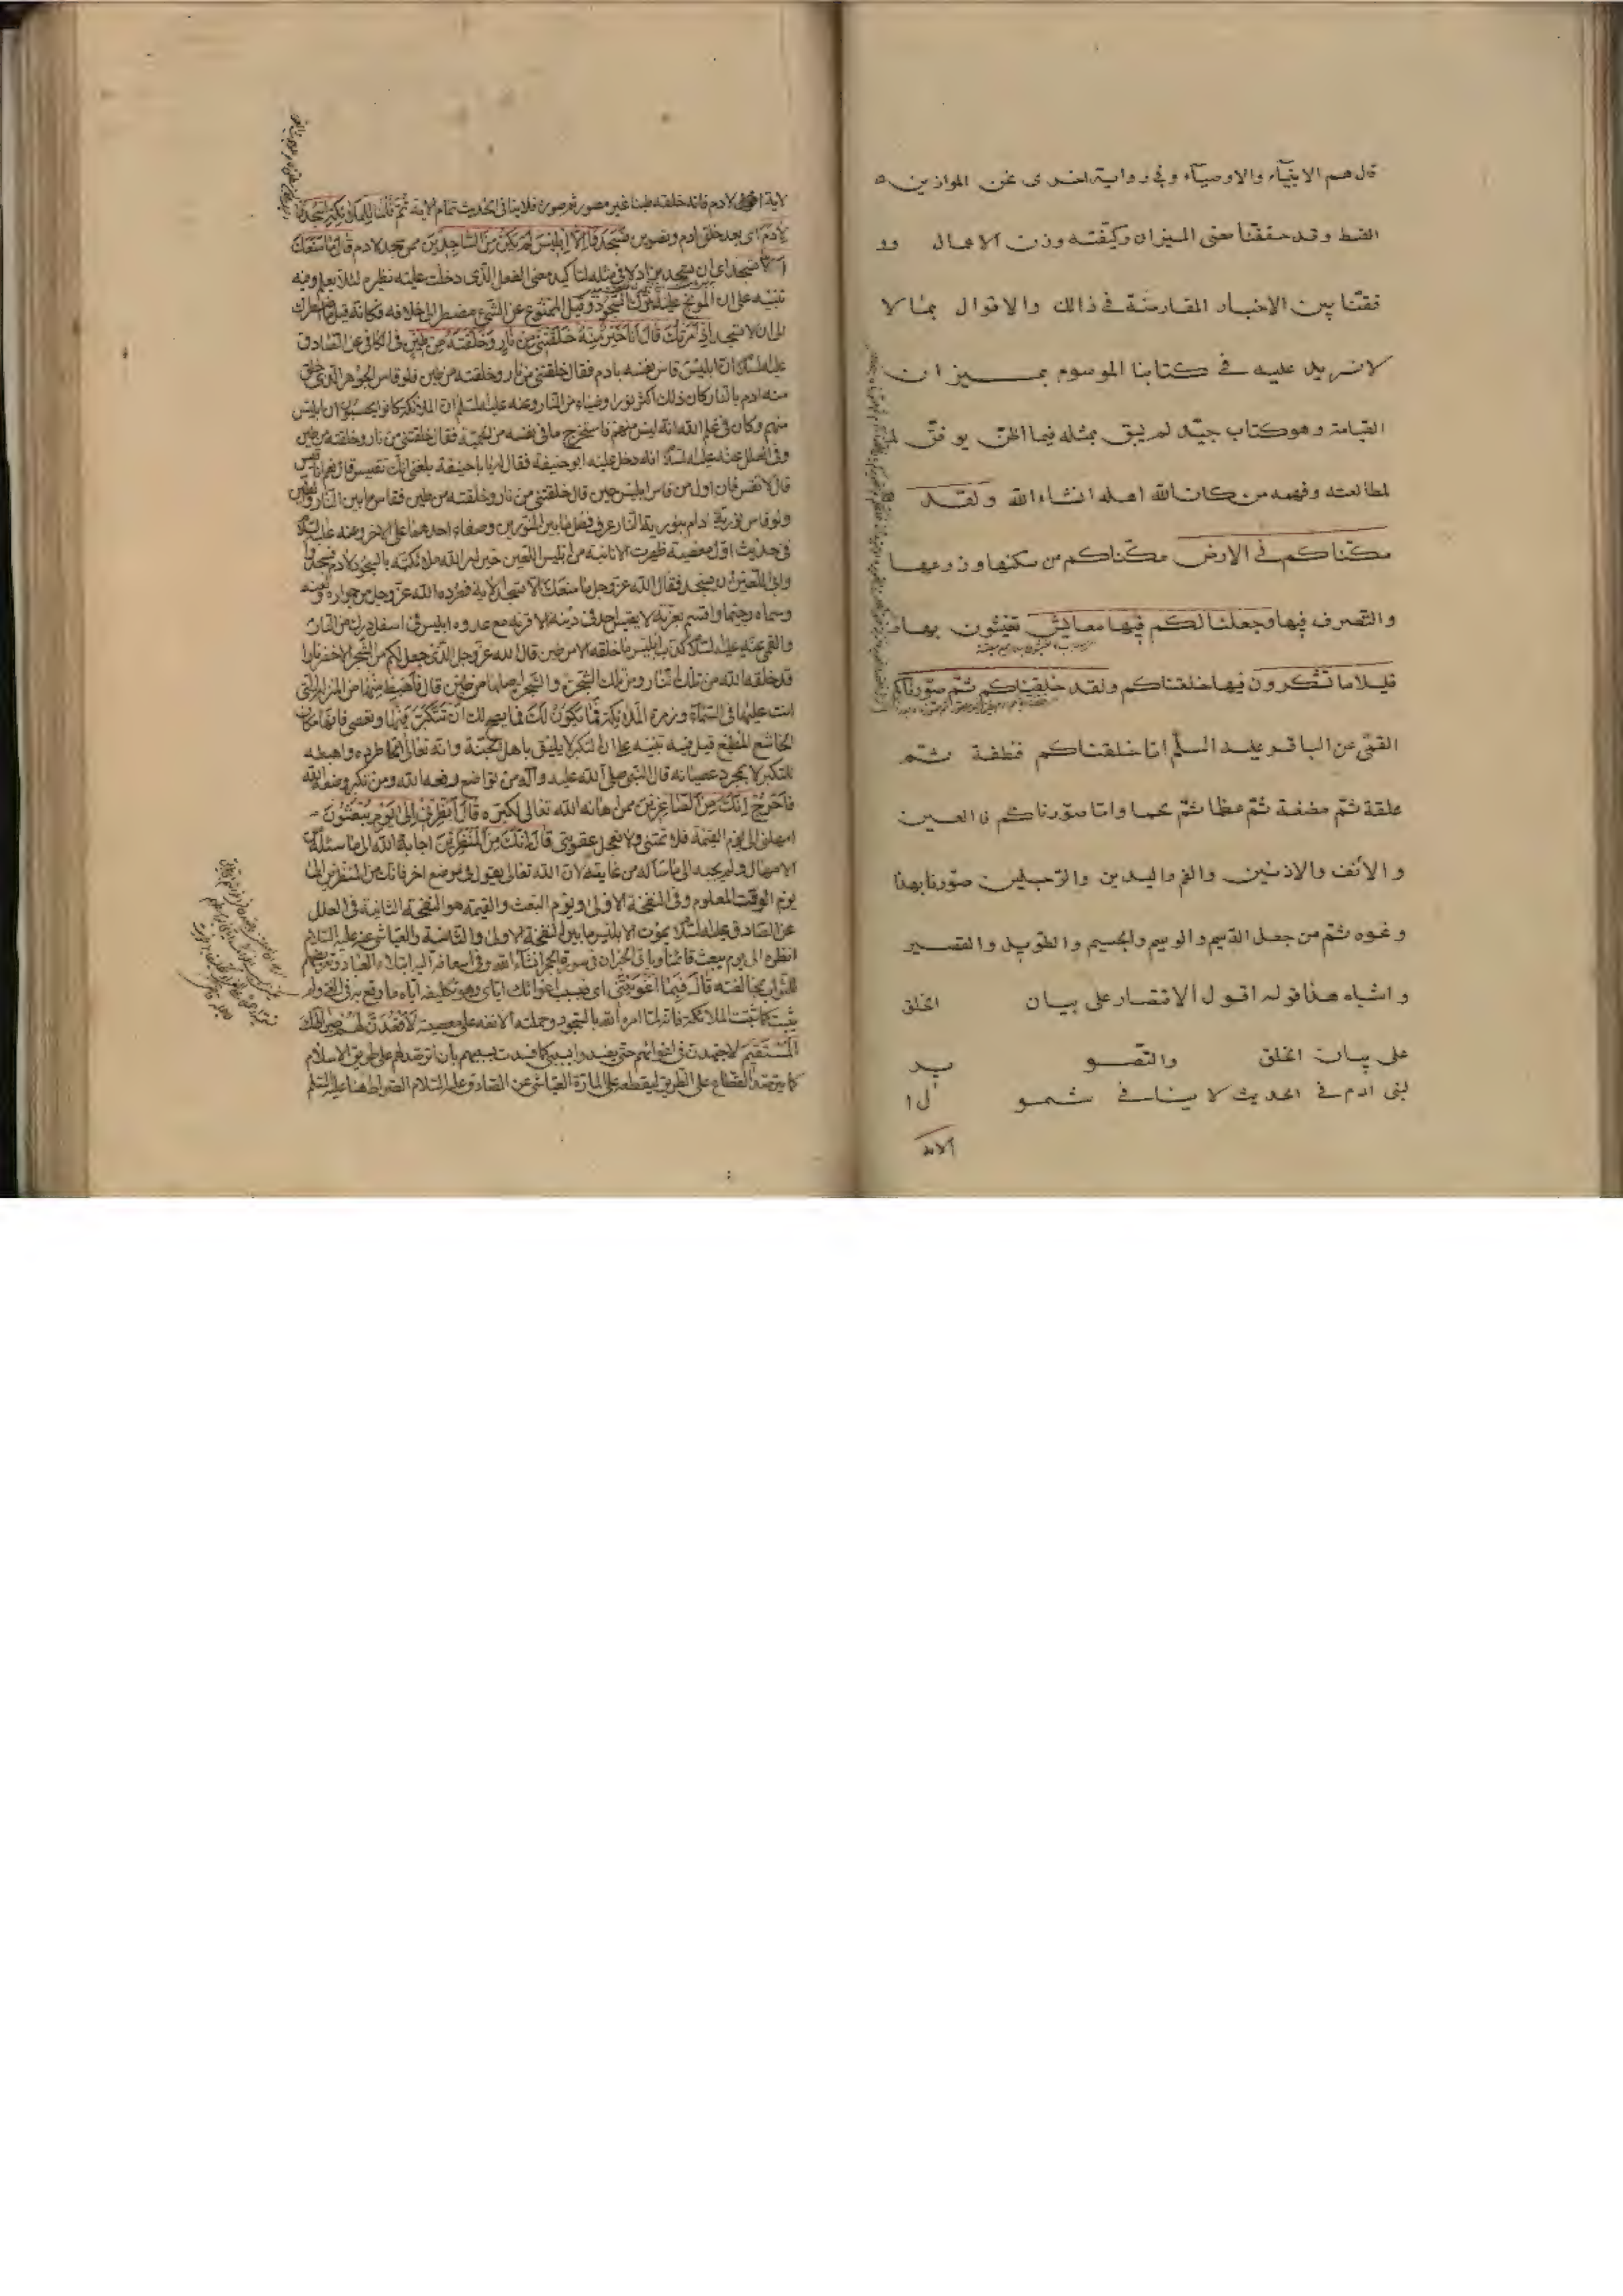 قال هم الانبياء والاوصياء وفي رواية اخرى نحن الموازين
القسط وقد حققنا معنى الميزان وكيفيته وزن الاعمال وو
فقنا بين الاخبار المتعارضة في ذالك والاقوال بما لا
لا نزيد عليه في كتابنا الموسوم بميزان
القيامة وهو كتاب جيد لم يبق بمثله فيما اظن يوفق
لمطالعته وفهمه من كان الله اهله انشاء الله ولقد
مكناكم في الارض مكناكم من سكنيها وزرعها
والتصرف فيها وجعلنا لكم فيها معايش تعيشون بها
قليلا ما تشكرون فيها خلقناكم ولقد خلقناكم ثم صورناكم
القمي عن الباقر عليه السلم اما خلقناكم فنطفة ثم
علقة ثم مضغة ثم عظما ثم لحما واما صورناكم فالعين
والانف والاذنين والفم واليدين والرجلين صورنا بهذا
ونحوه ثم من جعل الدميم والوسيم والجسيم والطويل والقصير
واشباه هذا قوله اقول الاقتصار على بيان الخلق
على بيان الخلق والتصو ير
لبنى ادم في الحديث لا ينافي شمو ل ا
الاية
لاية لادم فانه خلقه طينا غير مصور ثم صوره فلا ينافي الحديث تمام الاية ثم قلنا للملائكة اسجدوا
لادم اي بعد خلق ادم وتصويره فسجدوا الا ابليس لم يكن من الساجدين ممن سجد لادم قال ما منعك
الا تسجد اي ان تسجد يزاد لا في مثله لتاكيد معنى الفعل الذي دخلت عليه نظيره لئلا يعلم وفيه
تنبيه على ان الموبخ عليه ترك السجود وقيل الممنوع عن الشيء مضطر الى خلافه فكانه قيل ما اضطرك
الى ان لا تسجد اذ امرتك قال انا خير منه خلقتني من نار وخلقته من طين في الكافي عن الصادق
عليه السلام ان ابليس قاس نفسه بادم فقال خلقتني من نار وخلقته من طين فلو قاس الجوهر الذي خلق
منه ادم بالنار كان ذلك اكثر نورا وضياء من النار وعنه عليه السلم ان الملائكة كانوا يحسبون ان ابليس
منهم وكان في علم الله انه ليس منهم فاستخرج ما في نفسه من الحمية فقال خلقتني من نار وخلقته من طين
وفي العلل عنه عليه السلام انه دخل عليه ابو حنيفة فقال له يا با حنيفة بلغني انك تقيس قال نعم انا اقيس
قال لا تقس فان اول من قاس ابليس حين قال خلقتني من نار وخلقته من طين فقاس ما بين النار والطين
ولو قاس نورية ادم بنورية النار عرف فضل ما بين النورين وصفاء احدهما على الاخر وعنه عليه السلام
في حديث اول معصية ظهرت الانانية من ابليس اللعين حين امر الله ملائكته بالسجود لادم فسجدوا
وابى اللعين ان يسجد فقال الله عز وجل ما منعك الا تسجد الاية فطرده الله عز وجل من جواره ولعنه
وسماه رجيما واقسم بعزته لا يقيس احد في دينه الا قرنه مع عدوه ابليس في اسفل درك من النار
والقمي عنه عليه السلام كذب ابليس ما خلقه الا من طين قال الله عز وجل الذي جعل لكم من الشجر الاخضر نارا
قد خلقه الله من تلك النار ومن تلك الشجرة والشجر اصلها من طين قال فاهبط منها من المنزلة التي
انت عليها في السماء وزمرة الملائكة فما يكون لك فما يصح لك ان تتكبر فيها وتعصي فانها مكان
الخاشع المطيع قيل فيه تنبيه على ان التكبر لا يليق باهل الجنة وانه تعالى انما طرده واهبطه
للتكبر لا بمجرد عصيانه قال النبي صلى الله عليه وآله من تواضع رفعه الله ومن تكبر وضعه الله
فاخرج انك من الصاغرين ممن اهانه الله تعالى لكبره قال انظرني الى يوم يبعثون
امهلني الى يوم القيمة فلا تمتني ولا تعجل عقوبتي قال انك من المنظرين اجابة الله الى ما سئله من
الامهال ولم يجبه الى ما سأله من غايته لان الله تعالى يقول في موضع اخر فانك من المنظرين الى
يوم الوقت المعلوم وفي النفخة الاولى ويوم البعث والقيمة هو النفخة الثانية في العلل
عن الصادق عليه السلام يموت ابليس ما بين النفخة الاولى والثانية والعياشي عنه عليه السلام
انظره الى يوم يبعث قائمنا وياتي الخبران في سورة الحجر انشاء الله وفي اسعافه اليه ابتلاء العباد وتعريضهم
للثواب بمخالفته قال فبما اغويتني اي فبسبب اغوائك اياي وهو تكليفه اياه ما وقع به في الغي ولم
يثبت كما ثبتت الملائكة فانه لما امره الله بالسجود وحملته الانفة على معصيته لاقعدن لهم صراطك
المستقيم لاجتهدت في اغوائهم حتى يفسدوا بسببي كما فسدت بسببهم بان اترصد لهم على طريق الاسلام
كما يترصد القطاع على الطريق ليقطعه على المارة العياشي عن الصادق عليه السلام الصراط هنا علي عليه السلم